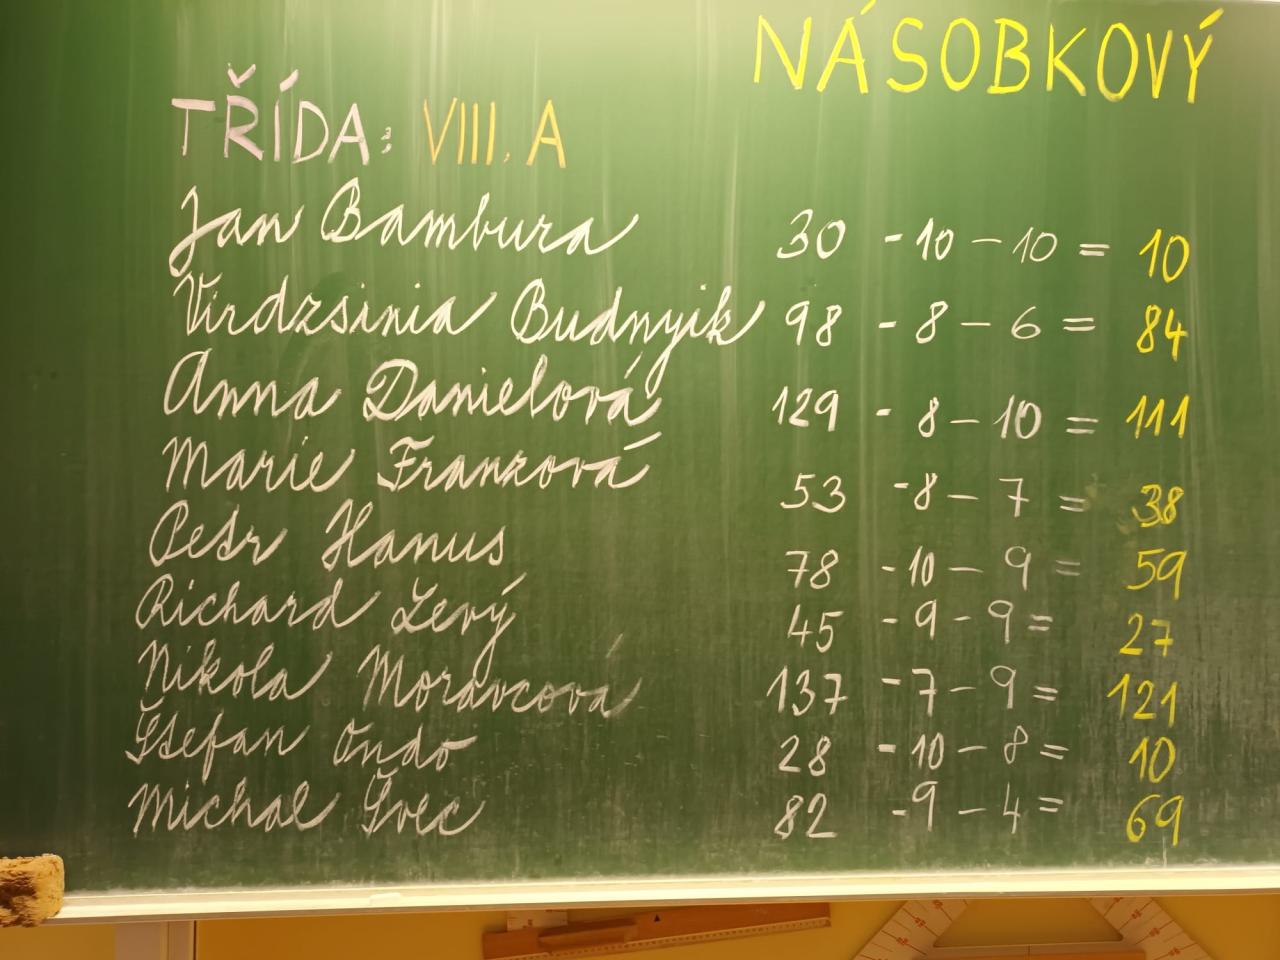 NÁSOBKOVÝ
TŘÍDA: VIII. A
Jan Bambura 30 - 10 - 10 = 10
Virdzsinia Budnyik 98 - 8 - 6 = 84
Anna Danielová 129 - 8 - 10 = 111
Marie Franzová 53 - 8 - 7 = 38
Petr Hanus 78 - 10 - 9 = 59
Richard Levý 45 - 9 - 9 = 27
Nikola Moravcova 137 - 7 - 9 = 121
Štefan Ondo 28 - 10 - 8 = 10
Michal Švec 82 - 9 - 4 = 69